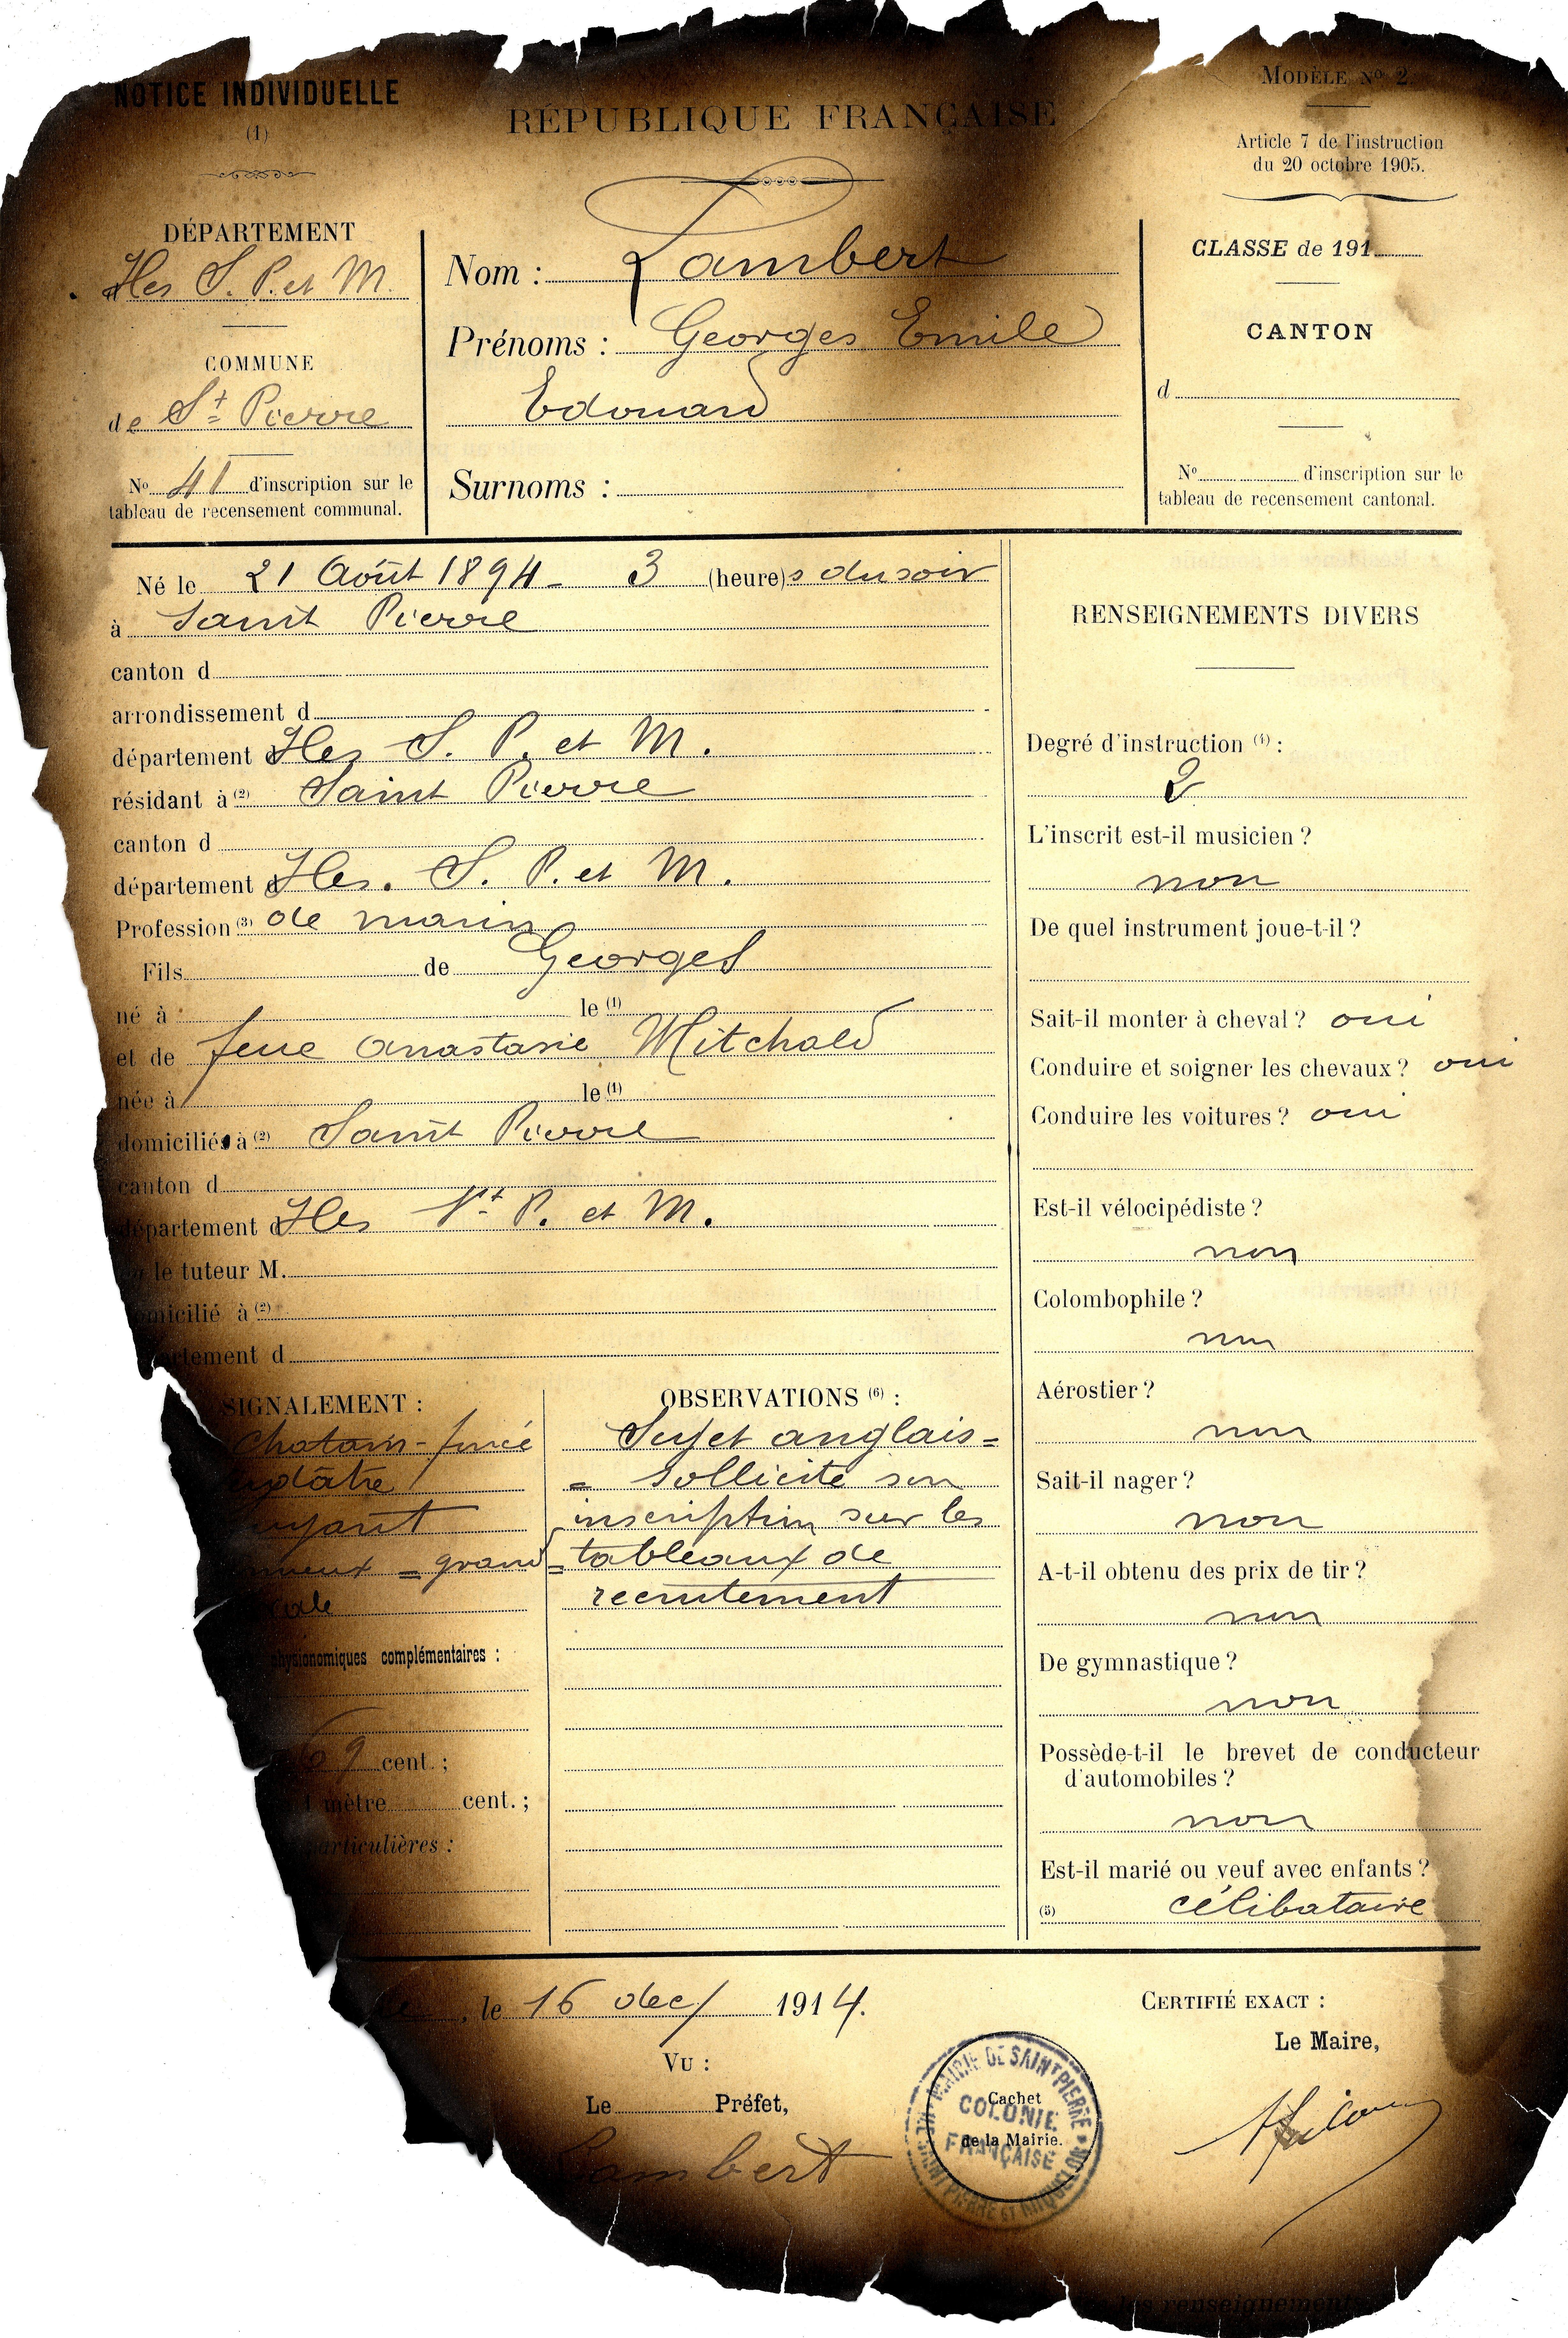 NOTICE INDIVIDUELLE
(1)
RÉPUBLIQUE FRANÇAISE
MODÈLE No 2
Article 7 de l'instruction
du 20 octobre 1905.
DÉPARTEMENT
Iles S. P. et M.
COMMUNE
de St Pierre
No 41 d'inscription sur le
tableau de recensement communal.
Nom : Lambert
Prénoms : Georges Emile
Edouard
Surnoms :
CLASSE de 191
CANTON
d
No d'inscription sur le
tableau de recensement cantonal.
Né le 21 Août 1894 - 3 (heure)s du soir
à Saint Pierre
canton d
arrondissement d
département d Iles S. P. et M.
résidant à (2) Saint Pierre
canton d
département d Iles. S. P. et M.
Profession (3) de marin
Fils de Georges
né à le (1)
et de feue Anastasie Mitchald
née à le (1)
domiciliés à (2) Saint Pierre
canton d
département d Iles St P. et M.
le tuteur M.
domicilié à (2)
département d
SIGNALEMENT :
Chatain - foncé
grand
physionomiques complémentaires :
69 cent. ;
1 mètre cent. ;
particulières :
OBSERVATIONS (6) :
Sujet anglais =
= sollicite son
inscription sur les
= tableaux de
recrutement
RENSEIGNEMENTS DIVERS
Degré d'instruction (4) :
2
L'inscrit est-il musicien ?
non
De quel instrument joue-t-il ?
Sait-il monter à cheval ? oui
Conduire et soigner les chevaux ? oui
Conduire les voitures ? oui
Est-il vélocipédiste ?
non
Colombophile ?
non
Aérostier ?
non
Sait-il nager ?
non
A-t-il obtenu des prix de tir ?
non
De gymnastique ?
non
Possède-t-il le brevet de conducteur
d'automobiles ?
non
Est-il marié ou veuf avec enfants ?
(5) célibataire
, le 16 dec/ 1914.
VU :
Le Préfet,
Lambert
MAIRIE DE SAINT PIERRE
COLONIE
FRANÇAISE
SAINT PIERRE ET MIQUELON
Cachet
de la Mairie.
CERTIFIÉ EXACT :
Le Maire,
les renseignements